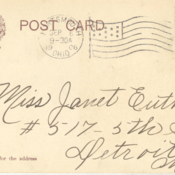 POST CARD
SEP
9-30A
OHIO
Miss Janet
# 517-5th
Detroit
for the address